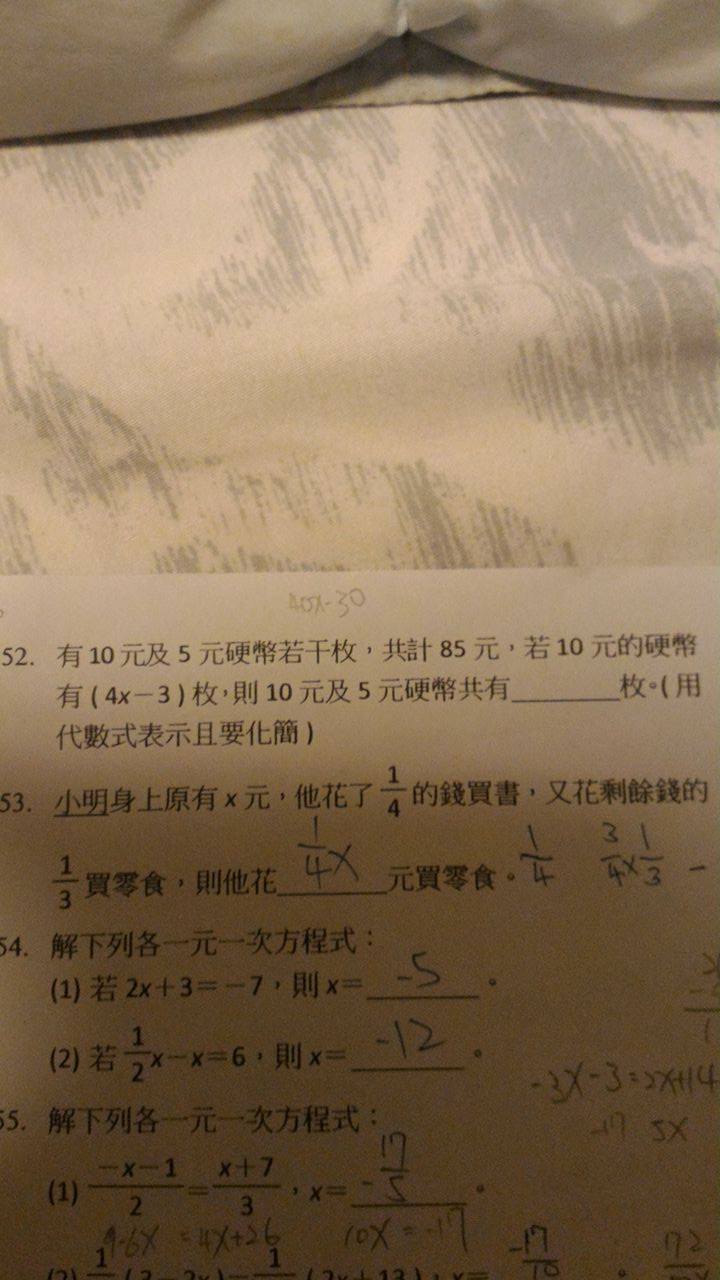 40x-30
52. 有 10 元及 5 元硬幣若干枚，共計 85 元，若 10 元的硬幣
有 ( 4x－3 ) 枚，則 10 元及 5 元硬幣共有________枚。( 用
代數式表示且要化簡 )
53. 小明身上原有 x 元，他花了 1/4 的錢買書，又花剩餘錢的
1/3 買零食，則他花 1/4x 元買零食。 1/4 3/4x1/3 -
54. 解下列各一元一次方程式：
(1) 若 2x＋3＝－7，則 x＝ -5 。
(2) 若 1/2x－x＝6，則 x＝ -12 。
-3x-3=2x+14
-17 5x
55. 解下列各一元一次方程式：
(1) －x－1/2＝x＋7/3，x＝ -17/5 。
9-6x =4x+26 10x = -17
-17/10